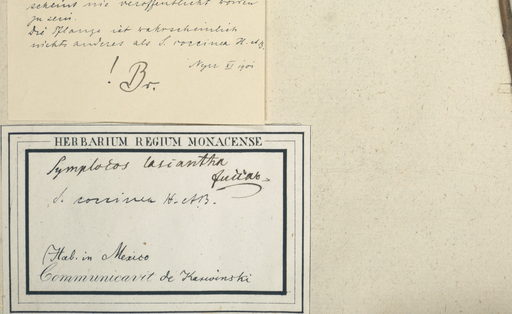 scheint nie veröffentlicht worden
zu sein.
Die Pflanze ist wahrscheinlich
nichts anderes als S. coccinea H. et B.
Nyr. XI 1901
! Br.
HERBARIUM REGIUM MONACENSE
Symplocos lasiantha
Zuccar.
S. coccinea H. & B.
Hab. in Mexico
Communicavit de Karwinski